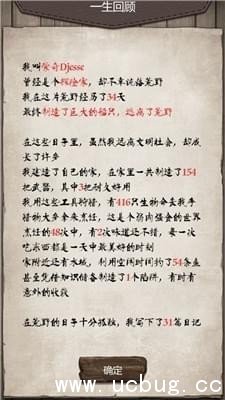 一生回顾
我叫紫奇Djesse
曾经是个探险家，却不幸流落荒野
我在这片荒野经历了34天
最终制造了巨大的船只，逃离了荒野
在这些日子里，虽然我远离文明社会，却成
长了许多
我建造了自己的家，在家里一共制造了154
把武器，其中3把耐久好用
我用这些工具狩猎，有416只生物命丧我手
猎物大多拿来烹饪，这是个弱肉强食的世界
烹饪的48次中，有2次味道还不错，每一次
吃东西都是一天中最美好的时刻
家附近还有水域，利用空闲时间钓了54条鱼
甚至凭借知识储备制造了1个陷阱，有时有
意外的收获
在荒野的日子十分孤独，我写下了31篇日记
确定
www.ucbug.cc